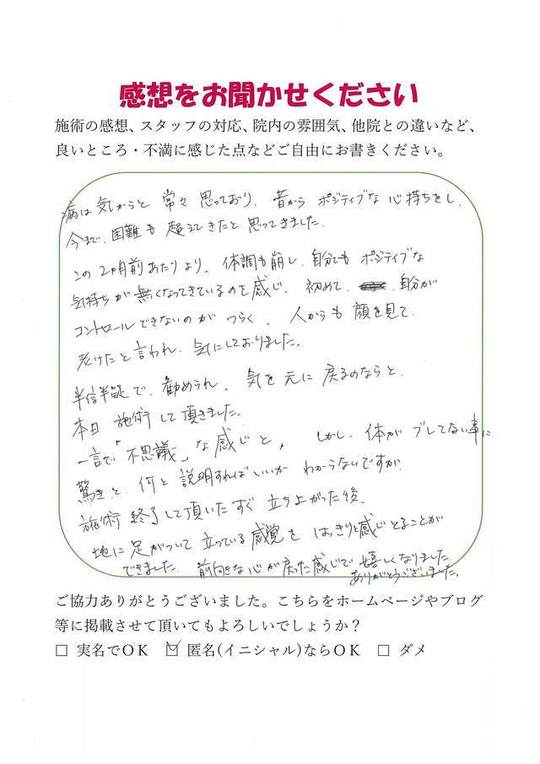 感想をお聞かせください
施術の感想、スタッフの対応、院内の雰囲気、他院との違いなど、
良いところ・不満に感じた点などご自由にお書きください。
病は気からと 常々思っており、昔から ポジティブな 心持ちをし、
今まで、困難も 超えてきたと思ってきました。
この2ヶ月前あたりより、体調も崩し、自分でも ポジティブな
気持ちが無くなってきているのを感じ、初めて、自分が
コントロールできないのが つらく、人からも 顔を見て、
老けたと言われ、気にしておりました。
半信半疑で、勧められ、気を元に戻るのならと、
本日 施術して頂きました。
一言で"不思議"な感じと、しかし、体がブレてない事に
驚きと、何と説明すればいいか わからないですが、
施術 終了して頂いたすぐ 立ち上がった後、
地に足がついて立っている感覚を はっきりと感じとることが
できました。前向きな心が戻った感じで 嬉しくなりました。
ありがとうございました。
ご協力ありがとうございました。こちらをホームページやブログ
等に掲載させて頂いてもよろしいでしょうか？
□ 実名でOK ☑ 匿名(イニシャル)ならOK □ ダメ